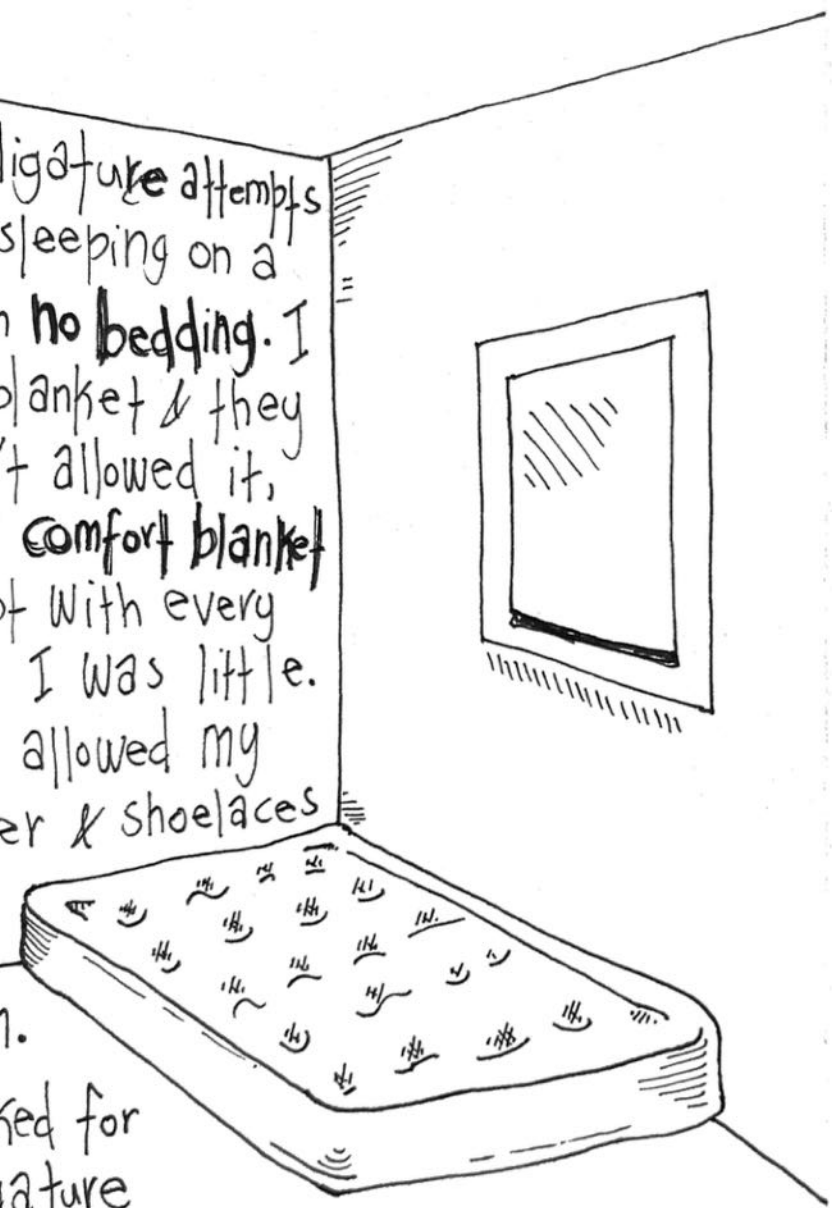 ligature attempts
sleeping on a
no bedding. I
blanket & they
't allowed it,
comfort blanket
with every
I was little.
allowed my
er & shoelaces
for